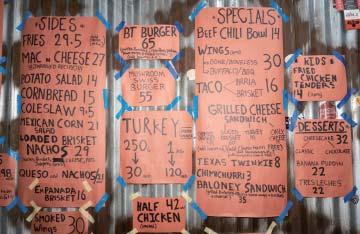 SIDES
FRIES 29.5
MAC N CHEESE 27
POTATO SALAD 14
CORNBREAD 15
COLESLAW 9.5
MEXICAN CORN 21
SALAD
LOADED BRISKET
NACHOS 29
QUESO AND NACHOS 21
EMPANADA
BRISKET 16
SMOKED
WINGS 30
BT BURGER
65
MUSHROOM
SWISS
BURGER
55
TURKEY
250. 1
30 120
HALF 42.
CHICKEN
SPECIALS
BEEF CHILI BOWL 14
WINGS
BONE/BONELESS 30
BUFFALO/BBQ
TACO BIRRIA
BRISKET 16
GRILLED CHEESE
SANDWICH
TEXAS TWINKIE 8
CHIMICHURRI 3
BALONEY SANDWICH
35
KIDS
FRIED
CHICKEN
TENDERS
14
DESSERTS
CHEESECAKE 32
CLASSIC CHOCOLATE
BANANA PUDDIN
22
TRES LECHES
22